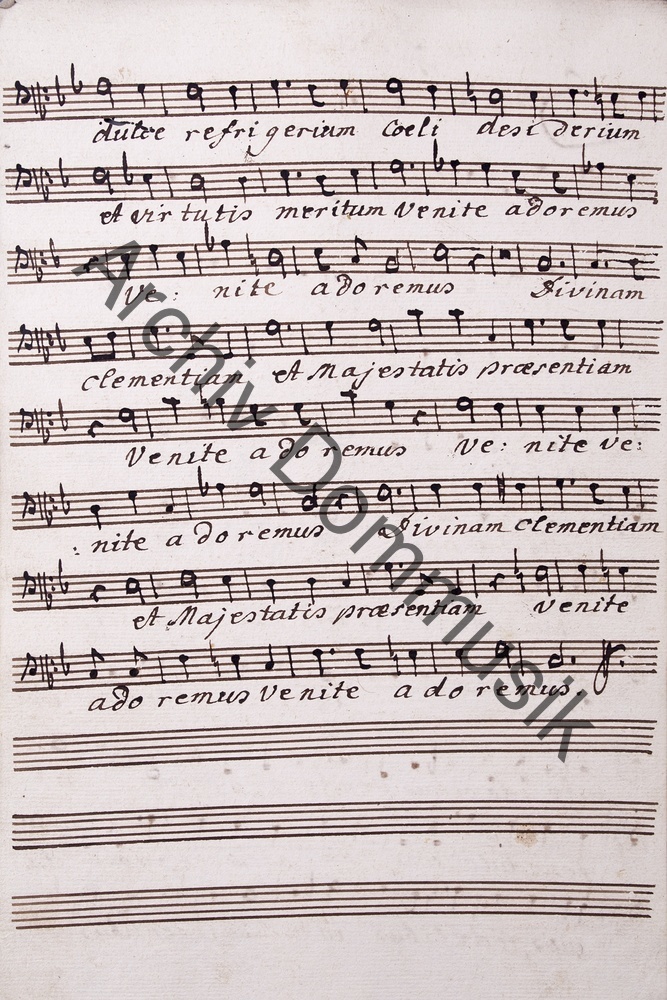 dulce refrigerium Coeli desiderium
et virtutis meritum Venite adoremus
Ve: nite adoremus Divinam
clementiam et Majestatis præsentiam
Venite adoremus Ve: nite Ve:
: nite adoremus Divinam clementiam
et Majestatis præsentiam venite
adoremus Venite adoremus.
Archiv Dommusik